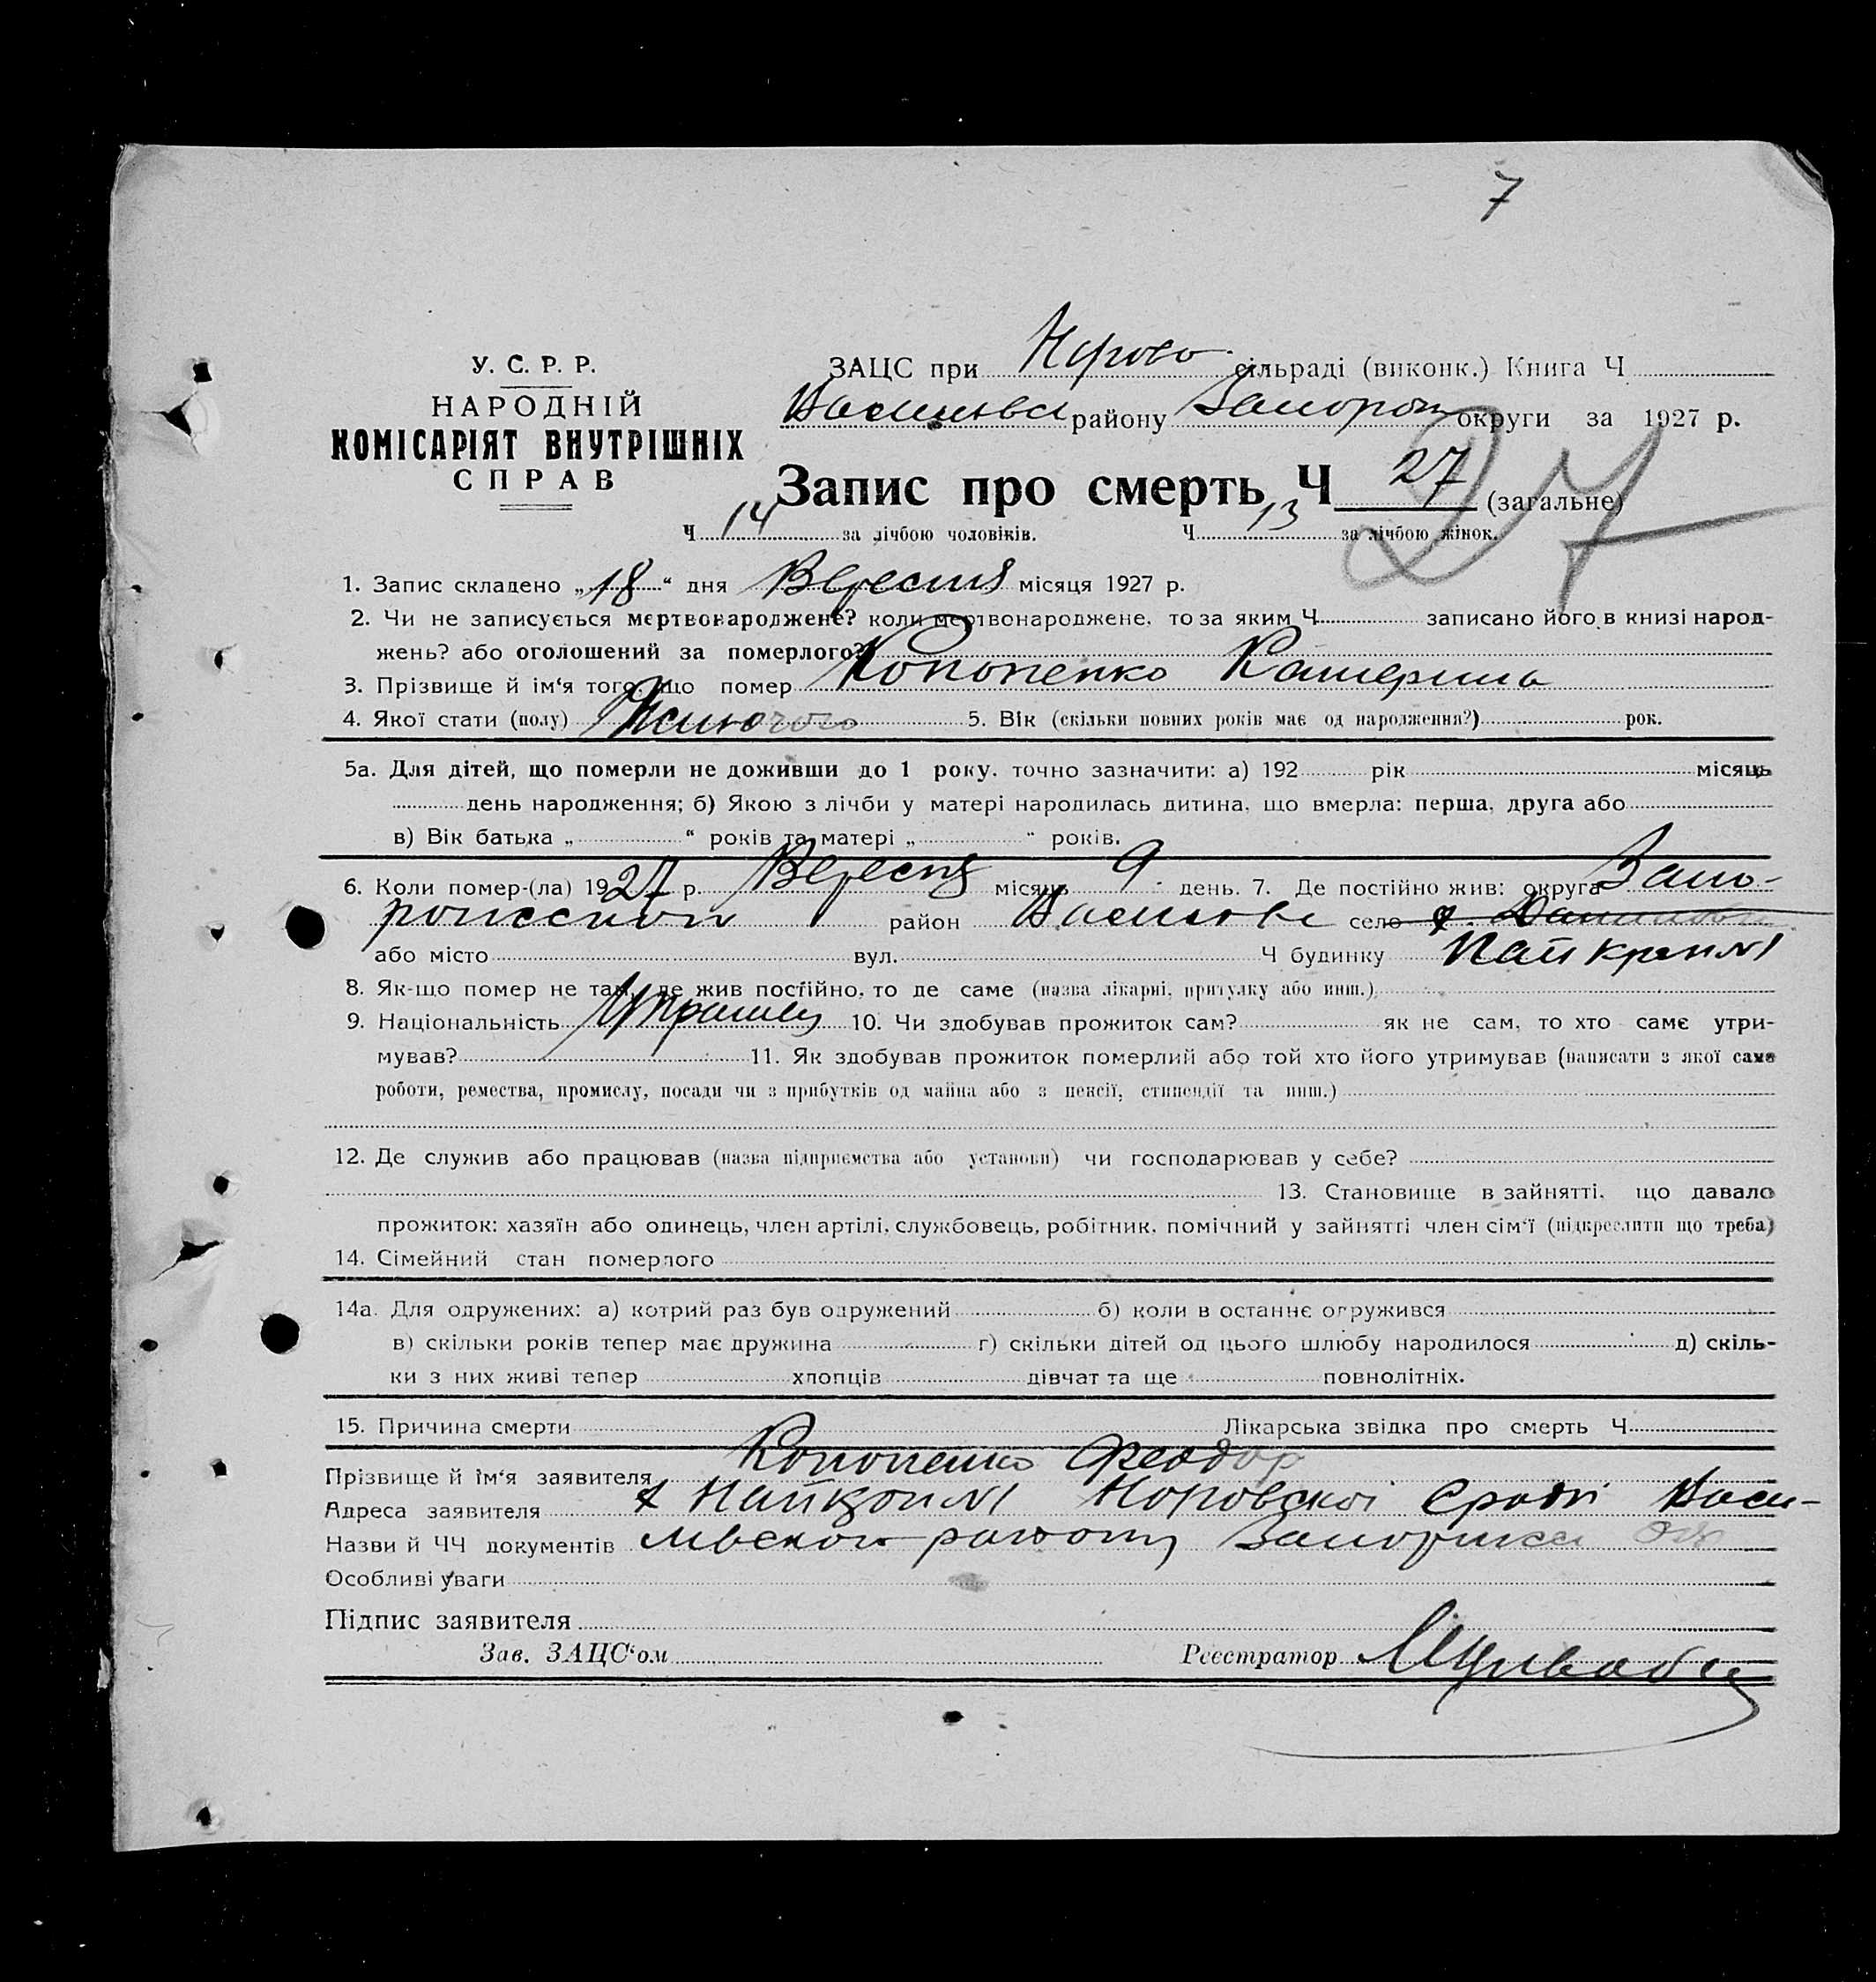 7
У. С. Р. Р.
НАРОДНІЙ
КОМІСАРІЯТ ВНУТРІШНІХ
СПРАВ
ЗАЦС при сільраді (виконк.) Книга Ч
району округи за 1927 р.
Запис про смерть Ч 27 (загальне)
27
Ч 14 за лічбою чоловіків. Ч 13 за лічбою жінок.
1. Запис складено „18“ дня Вересня місяця 1927 р.
2. Чи не записується мертвонароджене? коли мертвонароджене, то за яким Ч записано його в книзі народ-
жень? або оголошений за померлого?
3. Прізвище й ім‘я того, що помер Кононенко Катерина
4. Якої стати (полу) 5. Вік (скільки повних років має од народження?) рок.
5а. Для дітей, що померли не доживши до 1 року, точно зазначити: а) 192 рік місяць
день народження; б) Якою з лічби у матері народилась дитина, що вмерла: перша, друга або
в) Вік батька „ “ років та матері „ “ років.
6. Коли помер-(ла) 1927 р. Вересня місяць 9 день. 7. Де постійно жив: округа Запо-
район село
або місто вул. Ч будинку
8. Як-що помер не там, де жив постійно, то де саме (назва лікарні, притулку або инш.)
9. Національність 10. Чи здобував прожиток сам? як не сам, то хто саме утри-
мував? 11. Як здобував прожиток померлий або той хто його утримував (написати з якої саме
роботи, ремества, промислу, посади чи з прибутків од майна або з пенсії, стипендії та инш.)
12. Де служив або працював (назва підприємства або установи) чи господарював у себе?
13. Становище в зайнятті, що давало
прожиток: хазяїн або одинець, член артілі, службовець, робітник, помічний у зайнятті член сім‘ї (підкреслити що треба)
14. Сімейний стан померлого
14а. Для одружених: а) котрий раз був одружений б) коли в останнє одружився
в) скільки років тепер має дружина г) скільки дітей од цього шлюбу народилося д) скіль-
ки з них живі тепер хлопців дівчат та ще повнолітніх.
15. Причина смерти Лікарська звідка про смерть Ч
Прізвище й ім‘я заявителя Кононенко Феодор
Адреса заявителя Васи-
Назви й ЧЧ документів району
Особливі уваги
Підпис заявителя
Зав. ЗАЦС‘ом Реєстратор